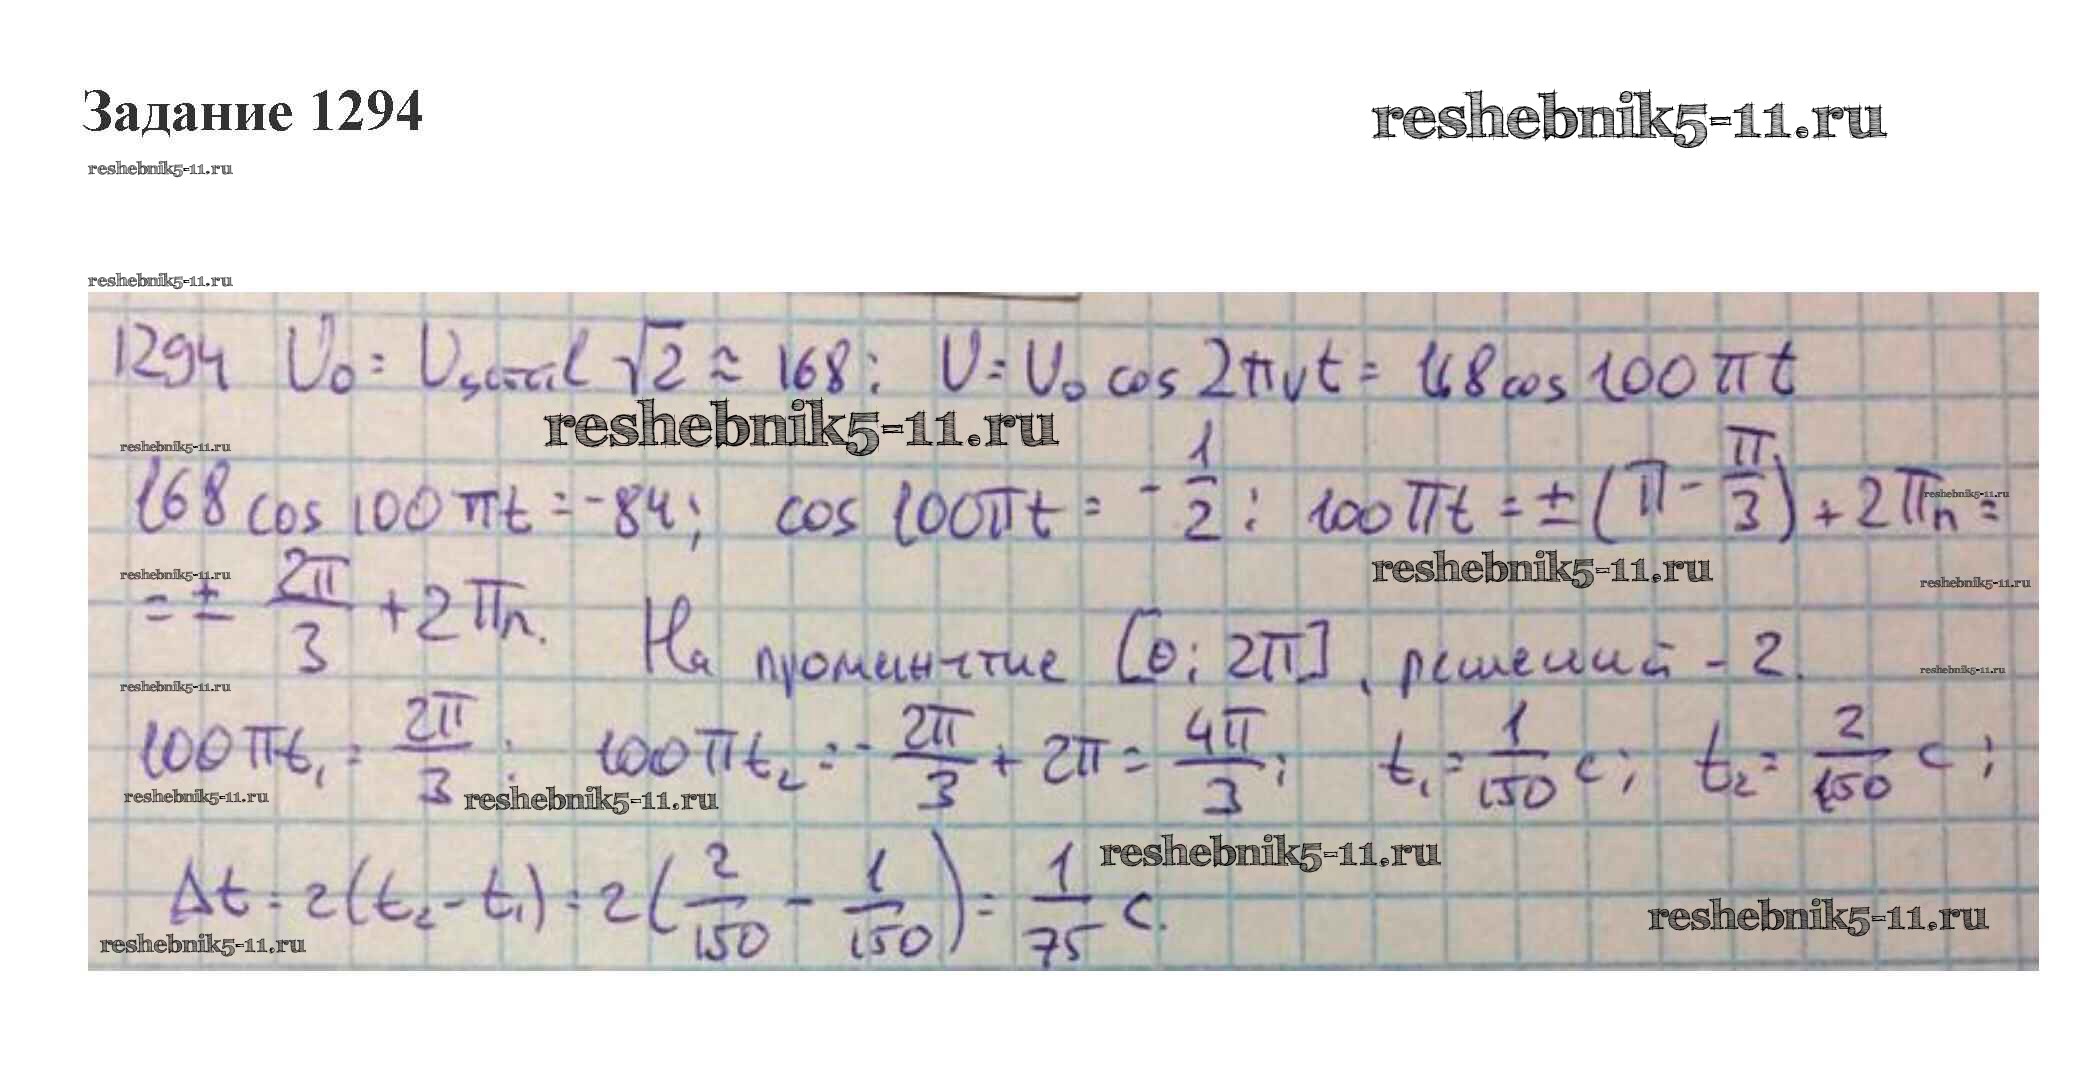 Задание 1294
reshebnik5-11.ru
reshebnik5-11.ru
reshebnik5-11.ru
1294 U₀ = U √2 ≈ 168; U = U₀ cos 2πνt = 168 cos 100πt
reshebnik5-11.ru
reshebnik5-11.ru
168 cos 100πt = -84; cos 100πt = -1/2; 100πt = ±(π - π/3) + 2πn =
reshebnik5-11.ru
reshebnik5-11.ru
reshebnik5-11.ru
reshebnik5-11.ru
= ± 2π/3 + 2πn. На [0; 2π], решений - 2.
reshebnik5-11.ru
reshebnik5-11.ru
100πt₁ = 2π/3; 100πt₂ = -2π/3 + 2π = 4π/3; t₁ = 1/150 с; t₂ = 2/150 с;
reshebnik5-11.ru
reshebnik5-11.ru
reshebnik5-11.ru
Δt = 2(t₂ - t₁) = 2(2/150 - 1/150) = 1/75 с.
reshebnik5-11.ru
reshebnik5-11.ru